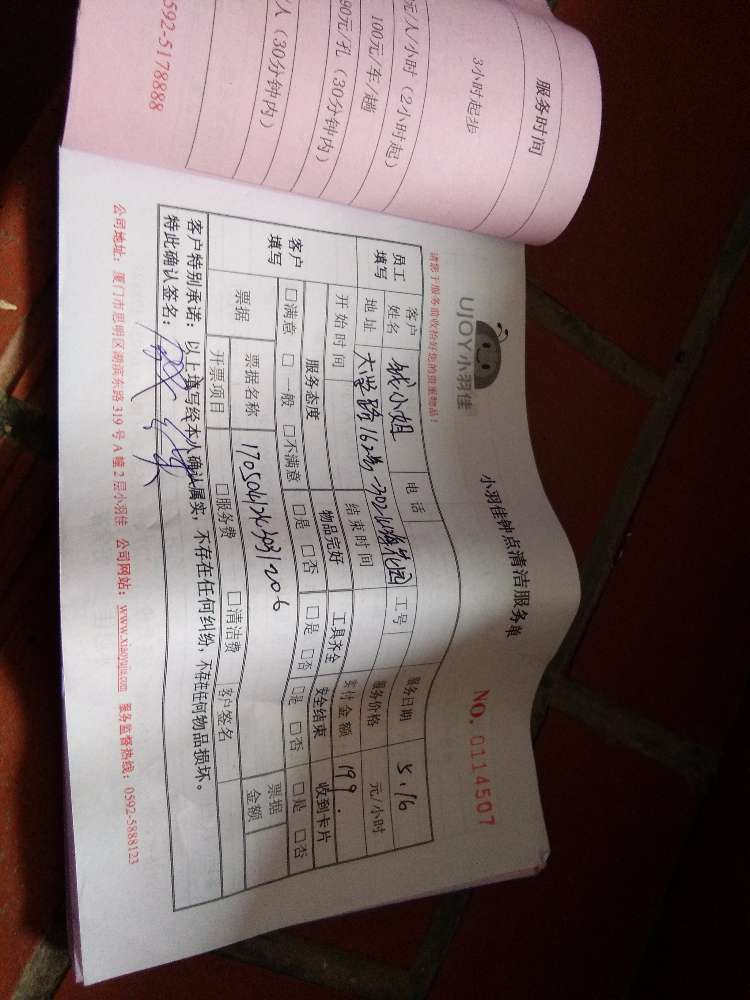 服务时间
3小时起步
元/人/小时（2小时起）
100元/车/趟
90元/孔（30分钟内）
人（30分钟内）
592-5178888
UJOY小羽佳
小羽佳钟点清洁服务单
NO. 0114507
请您于服务前收拾好您的贵重物品！
员工填写
客户姓名
钱小姐
电话
工号
服务日期
5.16
地址
大学路162号
服务价格
元/小时
开始时间
结束时间
实付金额
199.
客户填写
服务态度
物品完好
工具齐全
安全结束
收到卡片
□满意 □一般 □不满意
□是 □否
□是 □否
□是 □否
□是 □否
票据
票据名称
票据金额
开票项目
□服务费
□清洁费
客户签名
客户特别承诺：以上填写经本人确认属实，不存在任何纠纷，不存在任何物品损坏。
特此确认签名：
公司地址：厦门市思明区湖滨东路319号A幢2层小羽佳 公司网站：www.xiaoyujia.com 服务监督热线：0592-5888123